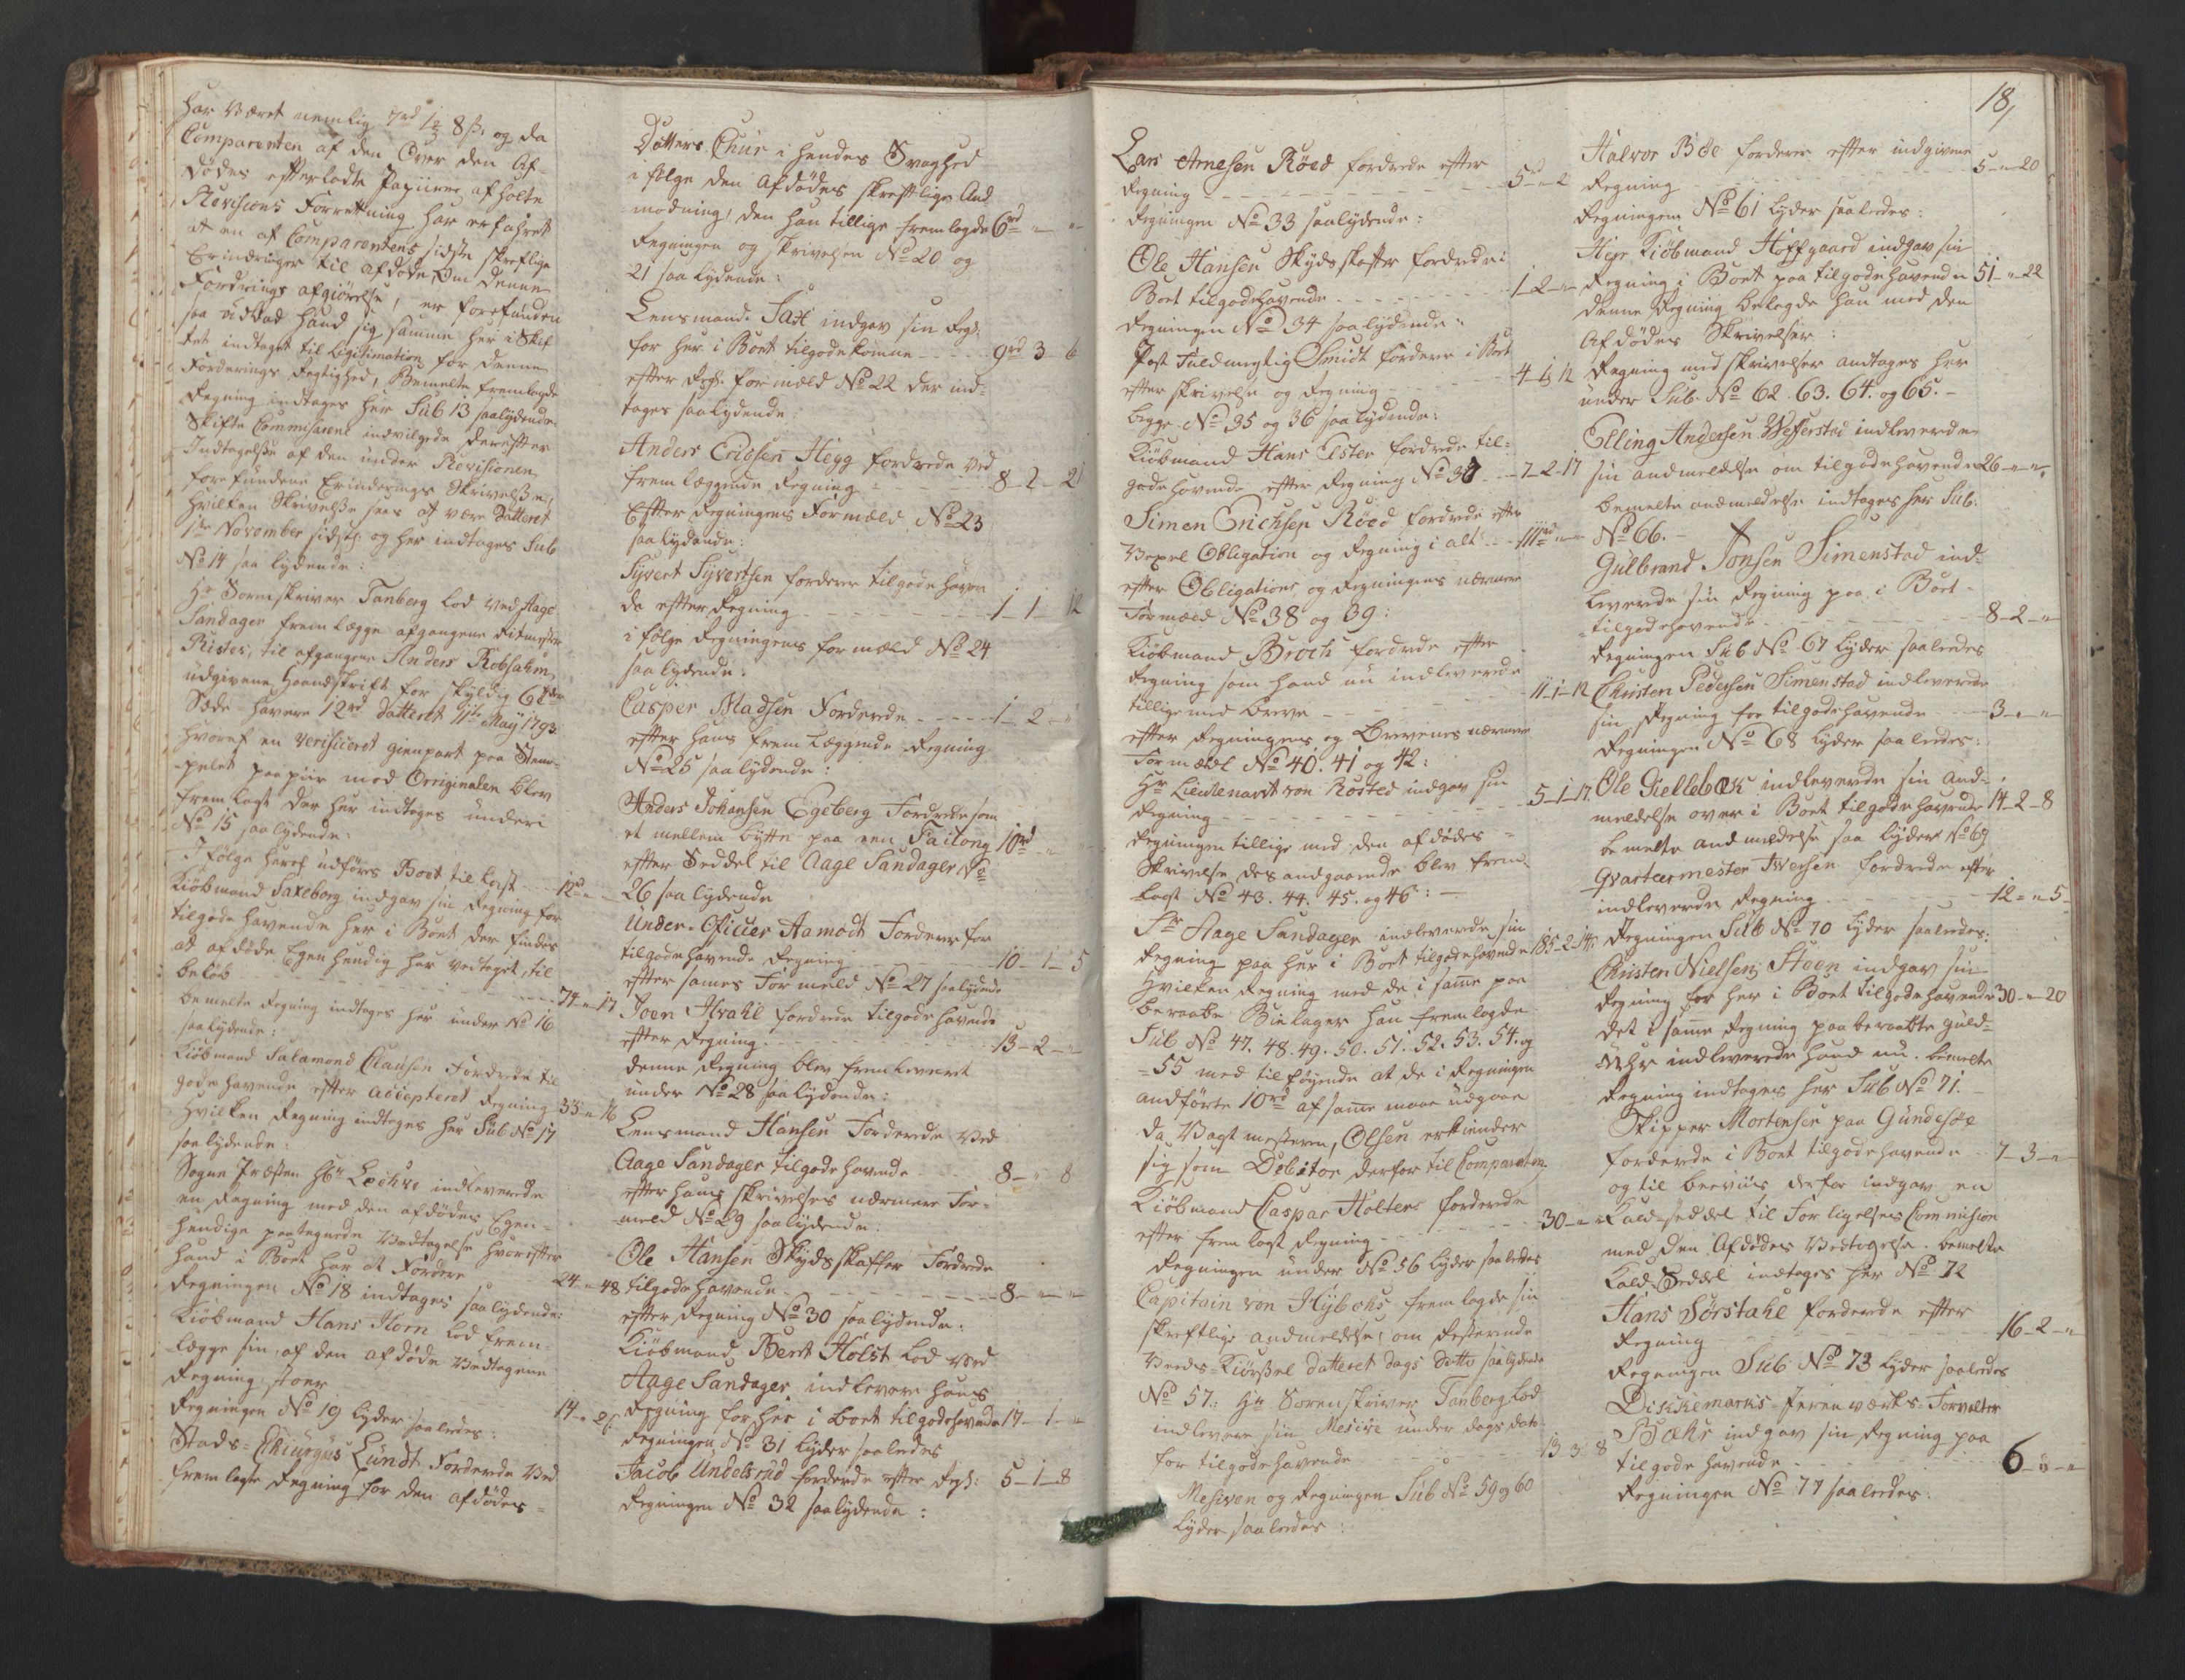 har været nemlig 7rd 1/2 8 s. og da
Comparenten af den Over den Af-
dødes efterladte Papiirer afholte
Revisions Forretning har erfahret
at en af Comparentens sidste skreftlige
Erindringer til afdøde, Om denne
Fordrings afgiørelse, er forefunden
saa udbad hand sig samme her i Skif
tet indtaget til Legitimation for denne
Forderings Rigtighed, Bemelte fremlagde
Regning indtages her Sub 13 saalydende
Skifte Commisarene indvilgede derefter
Indtagelse af den under Revisionen
forefundene Erindrings Skrivelse,
hvilken Skrivelse sees at være Datteret
1te November sidst: og her indtages Sub
No 14 saa lydende:
Hr Sorenskriver Tanberg lod ved Aage
Sandager fremlægge afgangene Ritmester
Rister, til afgangne Anders Robsahm
udgivene Haandskrift for skyldig 6 Tdr
Sæde-havre 12rd Datteret 11te May 1793.
hvoraf en verificeret gienpart paa Stem-
pelet papiir med Orriginalen blev
fremlagt der her indtages under
No 15 saalydende:
I følge heraf udføres Boet til last - - 12rd " -
Kiøbmand Saxeborg indgav sin Regning for
tilgode havende her i Boet der findes
at afdøde Egenhendig har vedtaget, til
beløb - - - 74 - " 17
bemelte Regning indtages her under No 16
saalydende:
Kiøbmand Salamond Clausen Fordrede til
gode havende efter acceptered Regning 35 - " 16
hvilken Regning indtages her Sub No 17
saalydende:
Sogne Præsten Hr Lechve indleverede
en Regning med den afdødes Egen-
hendige paategnede Vedtagelse hvorefter
hand i Boet har at Fordre 24 - " 48
Regningen No 18 indtages saalydende:
Kiøbmand Hans Horn lod frem-
lægge sin, af den afdøde Vedtagene
Regning, stoer 14 - " 21
Regningen No 19 lyder saaledes:
Stads-Chiurgus Lundt Forderede Ved
fremlagte Regning for den afdødes
Datters Chur i hendes Svaghed
i følge den afdødes skreftlige And
modning, den han tillige fremlagde 6rd " "
Regningen og skrivelsen No 20 og
21 saa lydende:
Lensmand Fast indgav sin Regn:
for her i Boet tilgodekomne - - 9rd 3 - 6
efter Regn: formæld No 22 der ind-
tages saalydende:
Anders Erichsen Hegg fordrede ved
fremlæggende Regning - - 8 - 2 - 21
Efter Regningens Formæld No 23
saalydende:
Sijvert Sijvertsen fordrer tilgode haven
de efter Regning - - - 1 - 1 - 12
i følge Regningens formæld No 24
saalydende:
Casper Madsen Forderede - - - 1 - 2 - "
efter hans fremlæggende Regning
No 25 saalydende:
Anders Johansen Egeberg Fordrede som
et mellem bytte paa een Failong 10rd "
efter Seddel til Aage Sandager No
26 saalydende
Under-Officier Aamodt Forderer for
tilgodehavende Regning - - 10 - 1 - 5
efter sames Formeld No 27 saalydende
Joen Hvahl fordrede tilgodehavende
efter Regning - - - 13 - 2 - "
denne Regning blev fremleveret
under No 28 saalydende:
Lensmand Hansen Forderede Ved
Aage Sandager tilgodehavende 8 - " 8
efter hans skrivelses nærmere For-
meld No 29 saalydende:
Ole Hansen Skydsskaffer Fordrede
tilgodehavende - - - 8 - " - "
efter Regning No 30 saalydende:
Kiøbmand Bernt Holst lod Ved
Aage Sandager indlevere hans
Regning for her i boet tilgodehavende 17 - 1 - "
Regningen No 31 lyder saaledes
Jacob Undelsrud forderede efter Regn: 5 - 1 - 8
Regningen No 32 saalydende:
18,
Lars Arnesen Røed fordrede efter
Regning - - - 5rd " 2
Regningen No 33 saalydende:
Ole Hansen Skydsskaffer fordrede i
Boet tilgodehavende - - - 1 - 2 - "
Regningen No 34 saalydende:
Post Fuldmegtig Smidt fordrer i Boet
efter skrivelse og Regning - - 4 - 1/2 12
begge No 35 og 36 saalydende:
Kiøbmand Hans Ester fordrede til-
gode havende efter Regning No 37 - - 7 - 2 - 17
Simen Erichsen Røed fordrede efter
Vexel Obligation og Regning i alt - - 111rd " -
efter Obligations og Regningens nærmere
Formæld No 38 og 39:
Kiøbmand Broch fordrede efter
Regning som hand nu indleverede
tillige med breve - - - 11 - 1 - 12
efter Regningens og Brevenes nærmere
Formældt No 40. 41 og 42:
Hr Lieutenandt von Rosted indgav sin
Regning - - - 5 - 1 - 17
Regningen tillige med den afdødes
Skrivelse desandgaaende blev frem-
lagt No 43. 44. 45. og 46:
Sr Aage Sandager indleverede sin
Regning paa her i Boet tilgodehavende 185 - 2 - 14
hvilken Regning med de i same paa
beraabte Bielager han fremlagde
Sub No 47. 48. 49. 50. 51. 52. 53. 54. og
55 med tilføyende at de i Regningen
andførte 10rd af same maae udgaae
da Vagtmesteren, Olsen erkiender
sig som Debitor derfor til Comparenten
Kiøbmand Caspar Holters forderede
efter fremlagt Regning - - 30 - " "
Regningen under No 56 lyder saaledes
Capitain von Hübohs fremlagde sin
skreftlige andmeldelse, om Resterende
Veeds-Kiørsel datteret dags datto saalydende
No 57: Hr Sorenskriver Tanberg lod
indlevere sin Mesive under dags dato
for tilgodehavende - - 13 3 8
Mesiven og Regningen Sub No 59 og 60
lyder saaledes:
Halvor Bøe forderer efter indgivene
Regning - - - 5 - " 20
Regningen No 61 lyder saaledes:
Herr Kiøbmand Hoffgaard indgav sin
Regning i Boet paa tilgodehavende 51 - " 22
denne Regning belagde han med den
Afdødes Skrivelser:
Regning med skrivelser andtages her
under Sub No 62. 63. 64. og 65.
Elling Andersen Wefferstad indleverede
sin andmeldelse om tilgodehavende 26 - " - "
bemelte andmeldelse indtages her Sub:
No 66.
Gulbrand Jonsen Simenstad ind-
leverede sin Regning paa i Boet
tilgodehavende - - - 8 - 2 - "
Regningen Sub No 67 lyder saaledes
Christen Pedersen Simenstad indleverede
sin Regning for tilgodehavende - - 3 - " - "
Regningen No 68 lyder saaledes:
Ole Gjellebæk indleverede sin and-
meldelse over i Boet tilgodehavende 14 - 2 - 8
bemelte andmeldelse saa lyder No 69
Qvarteermester Iversen fordrede efter
indleverede Regning - - 12 - " 5
Regningen Sub No 70 lyder saaledes:
Christen Nielsen Steen indgav sin
Regning for her i Boet tilgodehavende 30 - " 20
det i same Regning paaberaabte guld-
Uhr indleverede hand nu. bemelte
Regning indtages her Sub No 71.
Skipper Mortensen paa Gundesøe
forderede i Boet tilgodehavende - - 7 - 3 - "
og til beeviis derfor indgav en
Kald-seddel til Forligelses Commision
med den Afdødes Vedtegelse. bemelte
Kald-Seddel indtages her No 72
Hans Sørstahl forderede efter
Regning - - - 16 - 2 - "
Regningen Sub No 73 lyder saaledes
Dikkemarks-Jernværks-Forvalter
Bæhr indgav sin Regning paa
tilgodehavende - - 6 - " - "
Regningen No 77 saaledes: